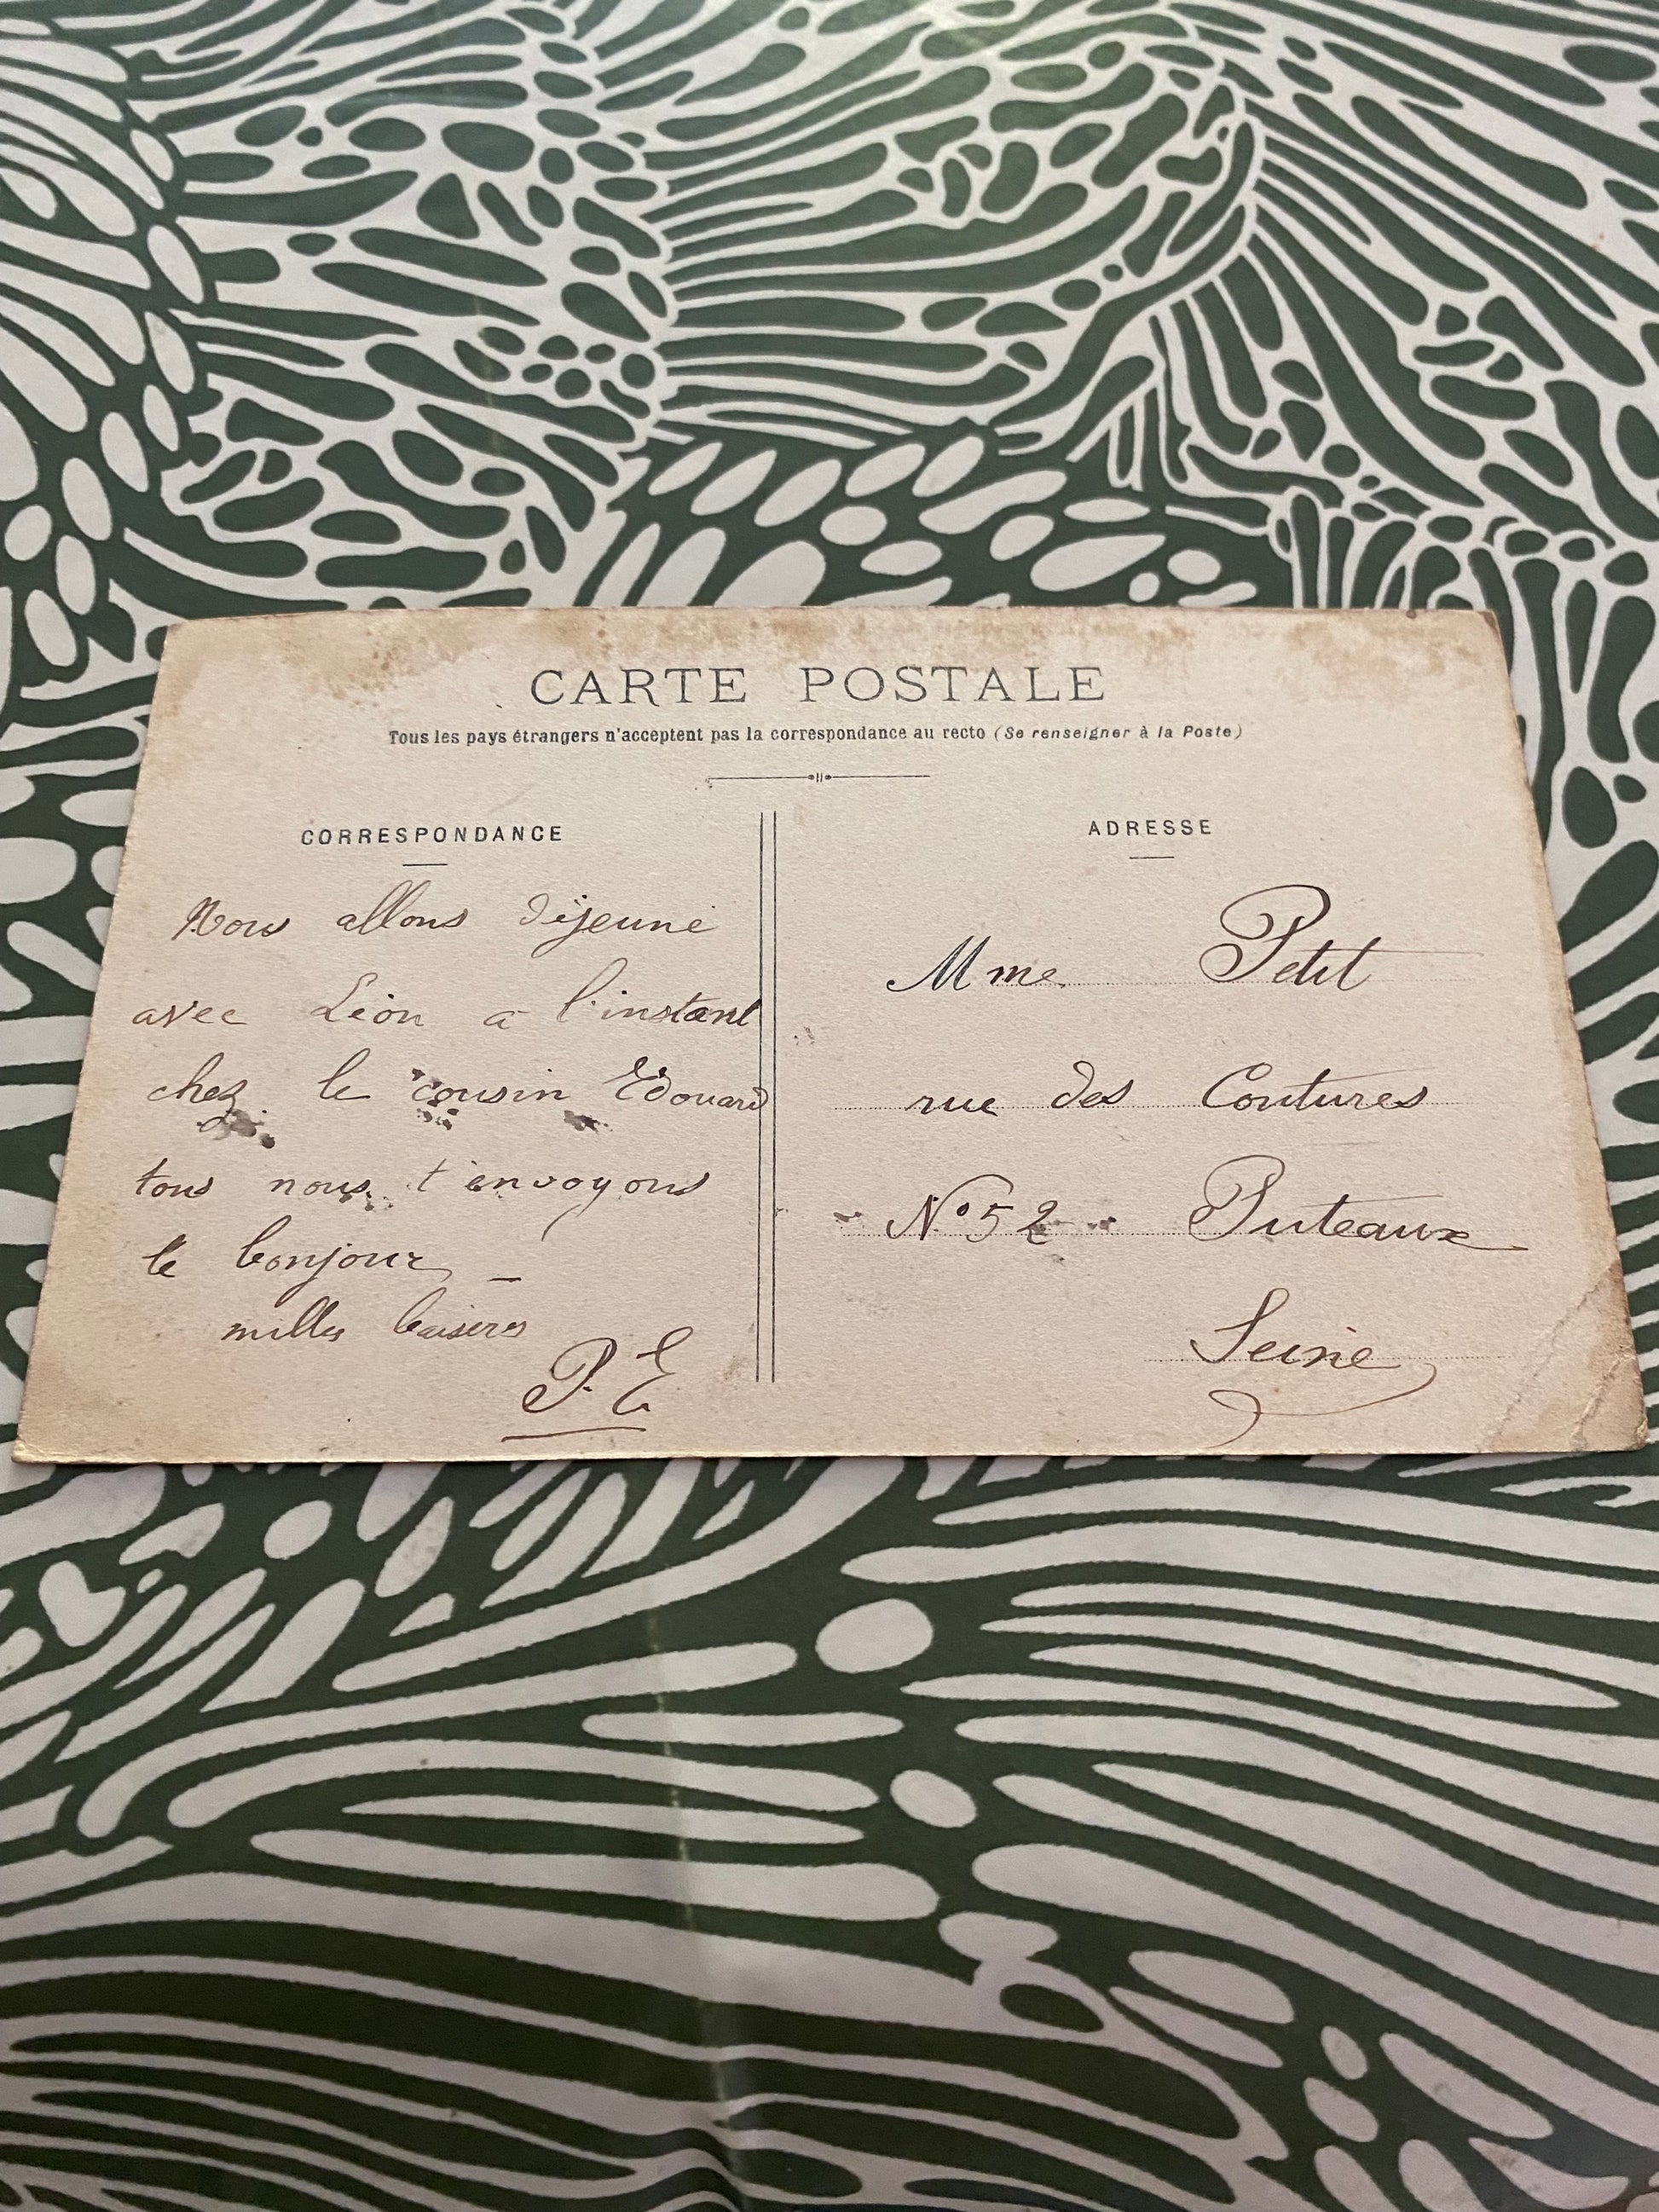 CARTE POSTALE
Tous les pays étrangers n'acceptent pas la correspondance au recto (Se renseigner à la Poste)
CORRESPONDANCE
Nous allons déjeuné
avec Léon a l'instant
chez le cousin Edouard
tous nous t'envoyons
le bonjour –
milles baisers
P. E
ADRESSE
Mme Petit
rue des Coutures
N° 52 Puteaux
Seine